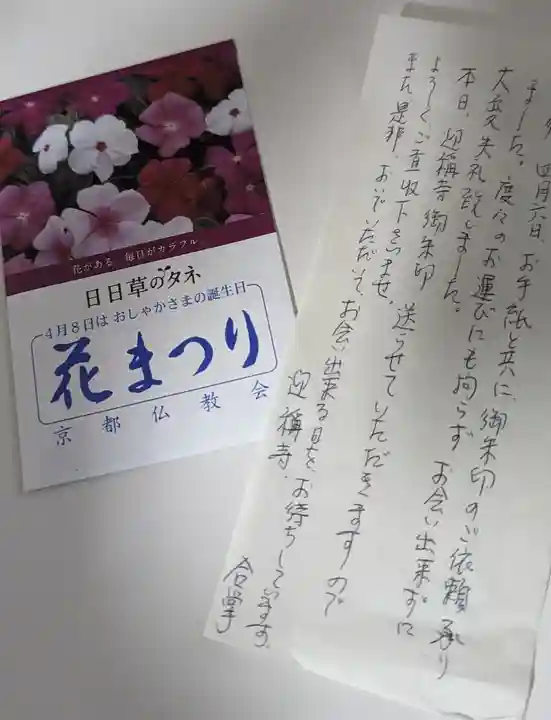 花がある 毎日がカラフル
日日草のタネ
4月8日は おしゃかさまの誕生日
花まつり
京都仏教会
四月六日、お手紙と共に、御朱印のご依頼承り
ました。度々のお運びにも拘らず お会い出来ずに
大変失礼致しました。
本日、迎称寺御朱印 送らせていただきますので
よろしくご査収下さいませ。
また是非、おいでいただいて、お会い出来る日を、お待ちしています。
迎稱寺.
合掌